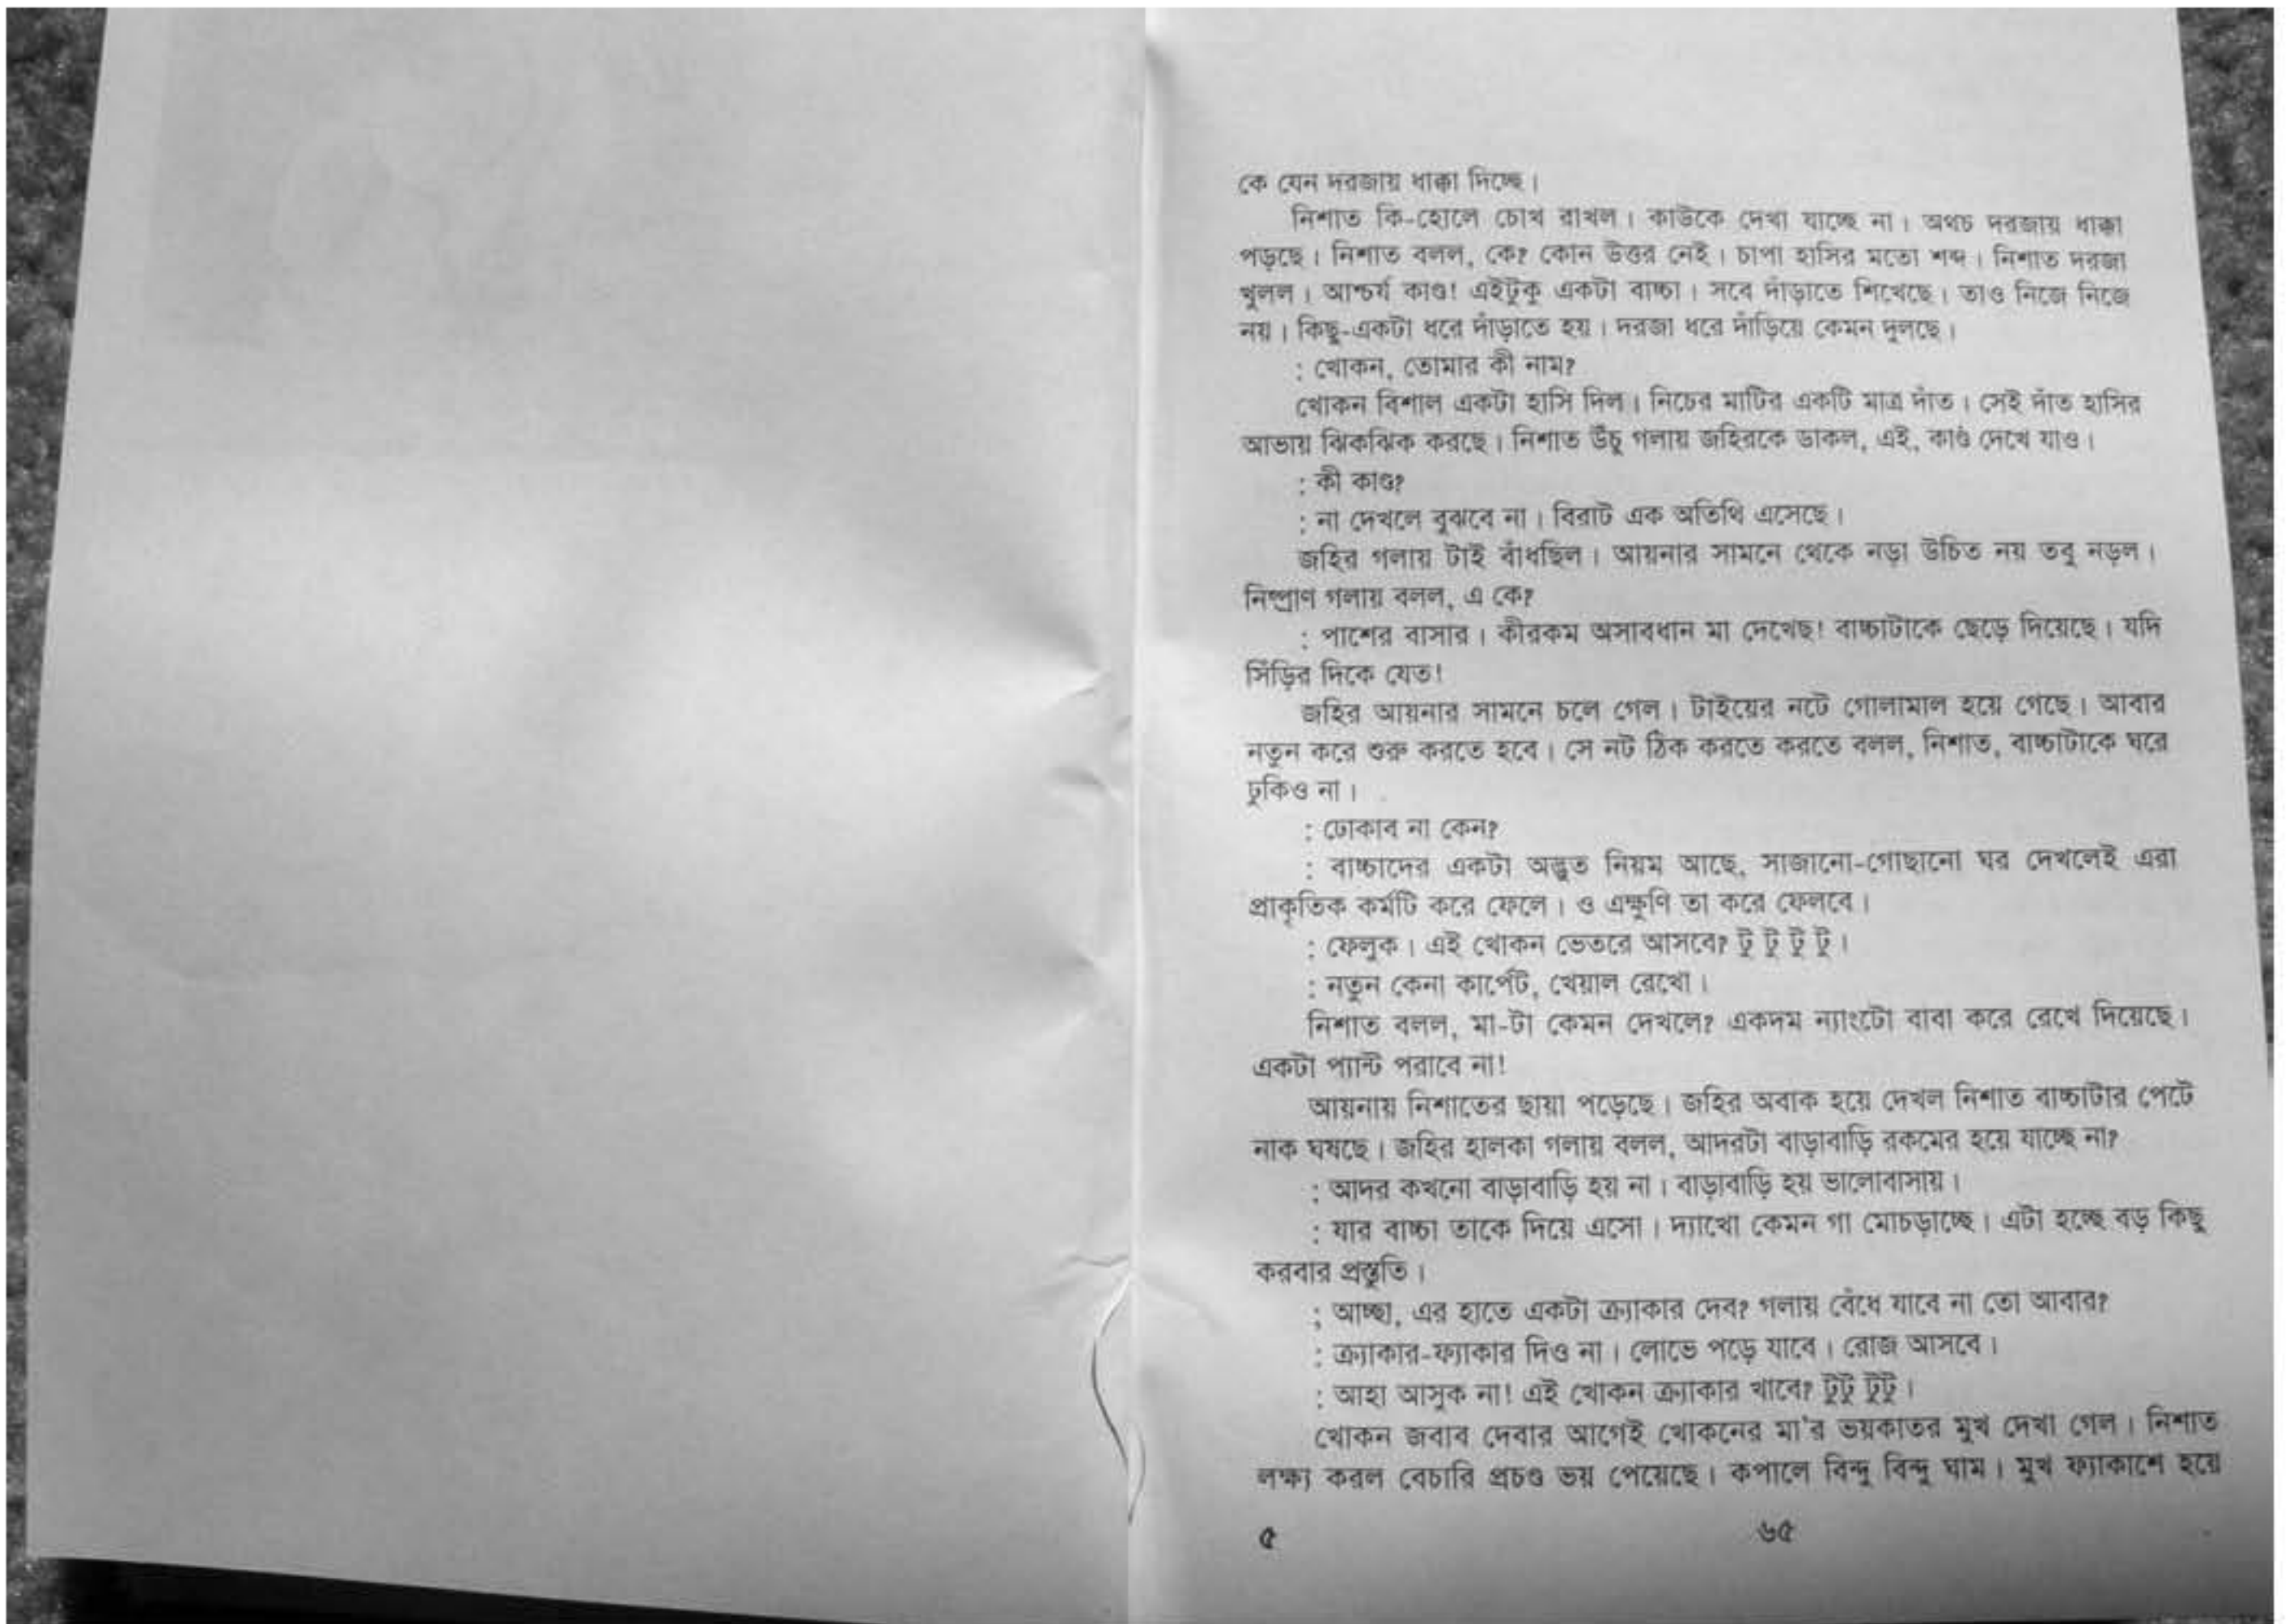 কে যেন দরজায় ধাক্কা দিচ্ছে।
নিশাত কি-হোলে চোখ রাখল। কাউকে দেখা যাচ্ছে না। অথচ দরজায় ধাক্কা
পড়ছে। নিশাত বলল, কে? কোন উত্তর নেই। চাপা হাসির মতো শব্দ। নিশাত দরজা
খুলল। আশ্চর্য কাণ্ড! এইটুকু একটা বাচ্চা। সবে দাঁড়াতে শিখেছে। তাও নিজে নিজে
নয়। কিছু-একটা ধরে দাঁড়াতে হয়। দরজা ধরে দাঁড়িয়ে কেমন দুলছে।
: খোকন, তোমার কী নাম?
খোকন বিশাল একটা হাসি দিল। নিচের মাটির একটি মাত্র দাঁত। সেই দাঁত হাসির
আভায় ঝিকঝিক করছে। নিশাত উঁচু গলায় জহিরকে ডাকল, এই, কাণ্ড দেখে যাও।
: কী কাণ্ড?
: না দেখলে বুঝবে না। বিরাট এক অতিথি এসেছে।
জহির গলায় টাই বাঁধছিল। আয়নার সামনে থেকে নড়া উচিত নয় তবু নড়ল।
নিষ্প্রাণ গলায় বলল, এ কে?
: পাশের বাসার। কীরকম অসাবধান মা দেখেছ! বাচ্চাটাকে ছেড়ে দিয়েছে। যদি
সিঁড়ির দিকে যেত!
জহির আয়নার সামনে চলে গেল। টাইয়ের নটে গোলামাল হয়ে গেছে। আবার
নতুন করে শুরু করতে হবে। সে নট ঠিক করতে করতে বলল, নিশাত, বাচ্চাটাকে ঘরে
ঢুকিও না।
: ঢোকাব না কেন?
: বাচ্চাদের একটা অদ্ভুত নিয়ম আছে, সাজানো-গোছানো ঘর দেখলেই এরা
প্রাকৃতিক কর্মটি করে ফেলে। ও এক্ষুণি তা করে ফেলবে।
: ফেলুক। এই খোকন ভেতরে আসবে? টু টু টু টু।
: নতুন কেনা কার্পেট, খেয়াল রেখো।
নিশাত বলল, মা-টা কেমন দেখলে? একদম ন্যাংটো বাবা করে রেখে দিয়েছে।
একটা প্যান্ট পরাবে না!
আয়নায় নিশাতের ছায়া পড়েছে। জহির অবাক হয়ে দেখল নিশাত বাচ্চাটার পেটে
নাক ঘষছে। জহির হালকা গলায় বলল, আদরটা বাড়াবাড়ি রকমের হয়ে যাচ্ছে না?
: আদর কখনো বাড়াবাড়ি হয় না। বাড়াবাড়ি হয় ভালোবাসায়।
: যার বাচ্চা তাকে দিয়ে এসো। দ্যাখো কেমন গা মোচড়াচ্ছে। এটা হচ্ছে বড় কিছু
করবার প্রস্তুতি।
: আচ্ছা, এর হাতে একটা ক্র্যাকার দেব? গলায় বেঁধে যাবে না তো আবার?
: ক্র্যাকার-ফ্যাকার দিও না। লোভে পড়ে যাবে। রোজ আসবে।
: আহা আসুক না! এই খোকন ক্র্যাকার খাবে? টুটু টুটু।
খোকন জবাব দেবার আগেই খোকনের মা'র ভয়কাতর মুখ দেখা গেল। নিশাত
লক্ষ্য করল বেচারি প্রচণ্ড ভয় পেয়েছে। কপালে বিন্দু বিন্দু ঘাম। মুখ ফ্যাকাশে হয়ে
৫ ৬৫